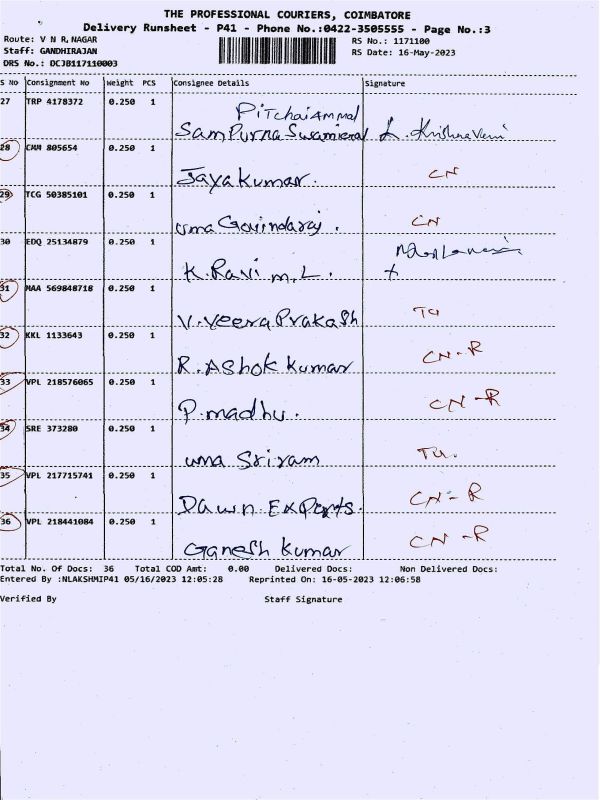 THE PROFESSIONAL COURIERS, COIMBATORE
Delivery Runsheet - P41 - Phone No.:0422-3505555 - Page No.:3
Route: V N R,NAGAR
RS No.: 1171100
Staff: GANDHIRAJAN
RS Date: 16-May-2023
DRS No.: DCJB117110003
S No Consignment No Weight PCS Consignee Details Signature
27 TRP 4178372 0.250 1
Pitchai Ammal
Sam Purna Swamieral L. Krishnaveni
28 CMM 805654 0.250 1
Jaya Kumar. CN
29 TCG 50385101 0.250 1
uma Govindaraj. CN
30 EDQ 25134879 0.250 1
K. Ravi m. L.
31 MAA 569848718 0.250 1
V. Veera Prakash
32 KKL 1133643 0.250 1
R. Ashok Kumar CN-R
33 VPL 218576065 0.250 1
P. madhu. CN-R
34 SRE 373280 0.250 1
uma Sriram
35 VPL 217715741 0.250 1
Dawn Exports. CN-R
36 VPL 218441084 0.250 1
Ganesh Kumar CN-R
Total No. Of Docs: 36 Total COD Amt: 0.00 Delivered Docs: Non Delivered Docs:
Entered By :NLAKSHMIP41 05/16/2023 12:05:28 Reprinted On: 16-05-2023 12:06:58
Verified By Staff Signature